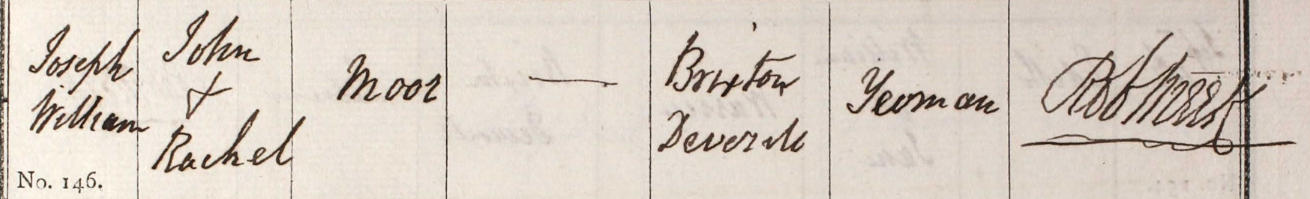 Joseph
William
No. 146.
John
&
Rachel
Moor
—
Brixton
Deverill
Yeoman